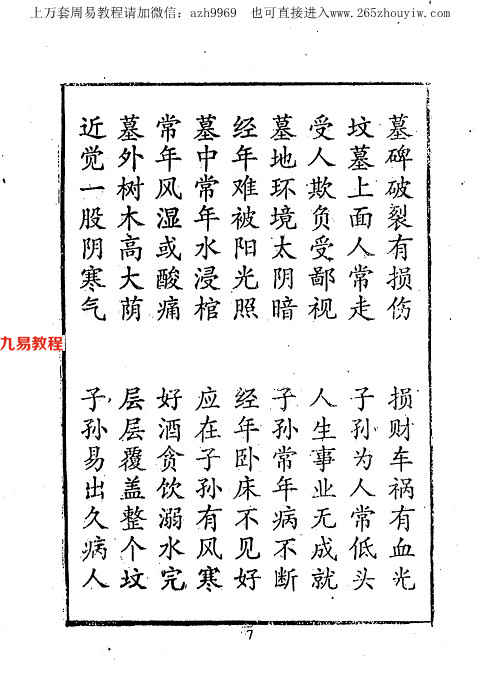 上万套周易教程请加微信：azh9969 也可直接进入www.265zhouyiw.com
墓碑破裂有损伤 损财车祸有血光
坟墓上面人常走 子孙为人常低头
受人欺负受鄙视 人生事业无成就
墓地环境太阴暗 子孙常年病不断
经年难被阳光照 经年卧床不见好
墓中常年水浸棺 应在子孙有风寒
常年风湿或酸痛 好酒贪饮溺水完
墓外树木高大荫 层层覆盖整个坟
近觉一股阴寒气 子孙易出久病人
九易教程
7